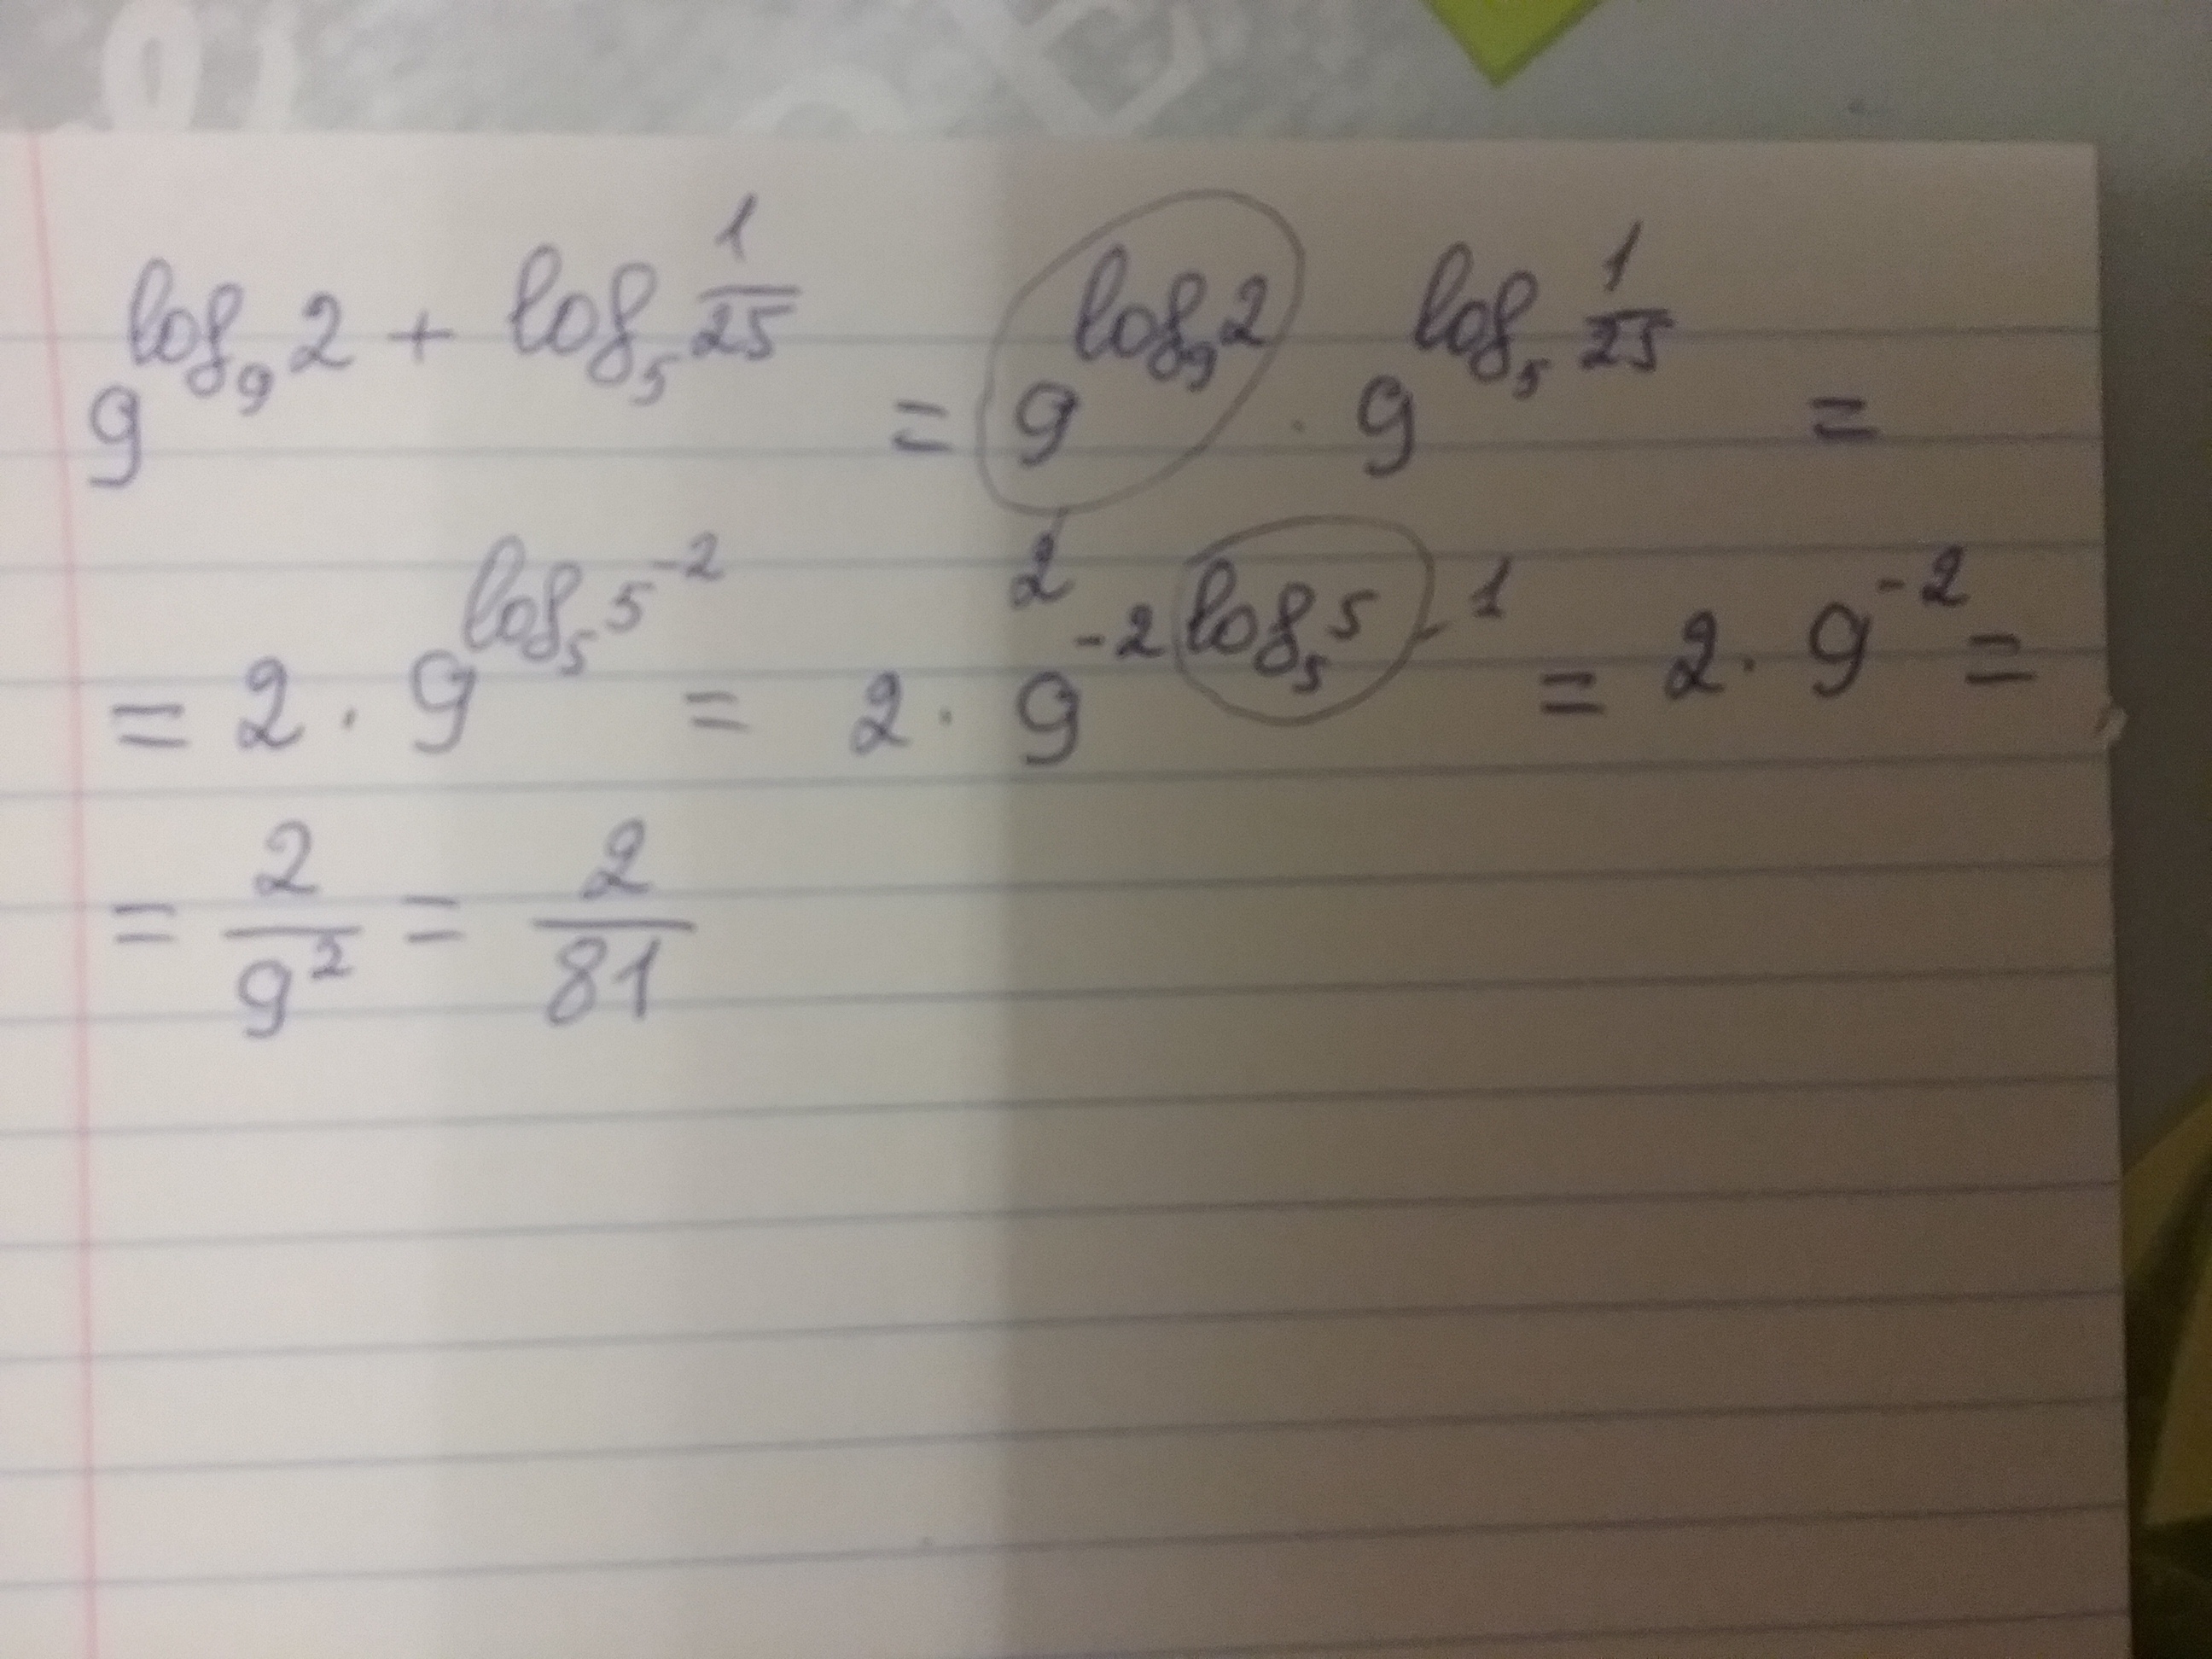 9^{log_9 2 + log_5 \frac{1}{25}} = 9^{log_9 2} · 9^{log_5 \frac{1}{25}} =
2
= 2 · 9^{log_5 5^{-2}} = 2 · 9^{-2 log_5 5} - 1 = 2 · 9^{-2} =
= \frac{2}{9^2} = \frac{2}{81}